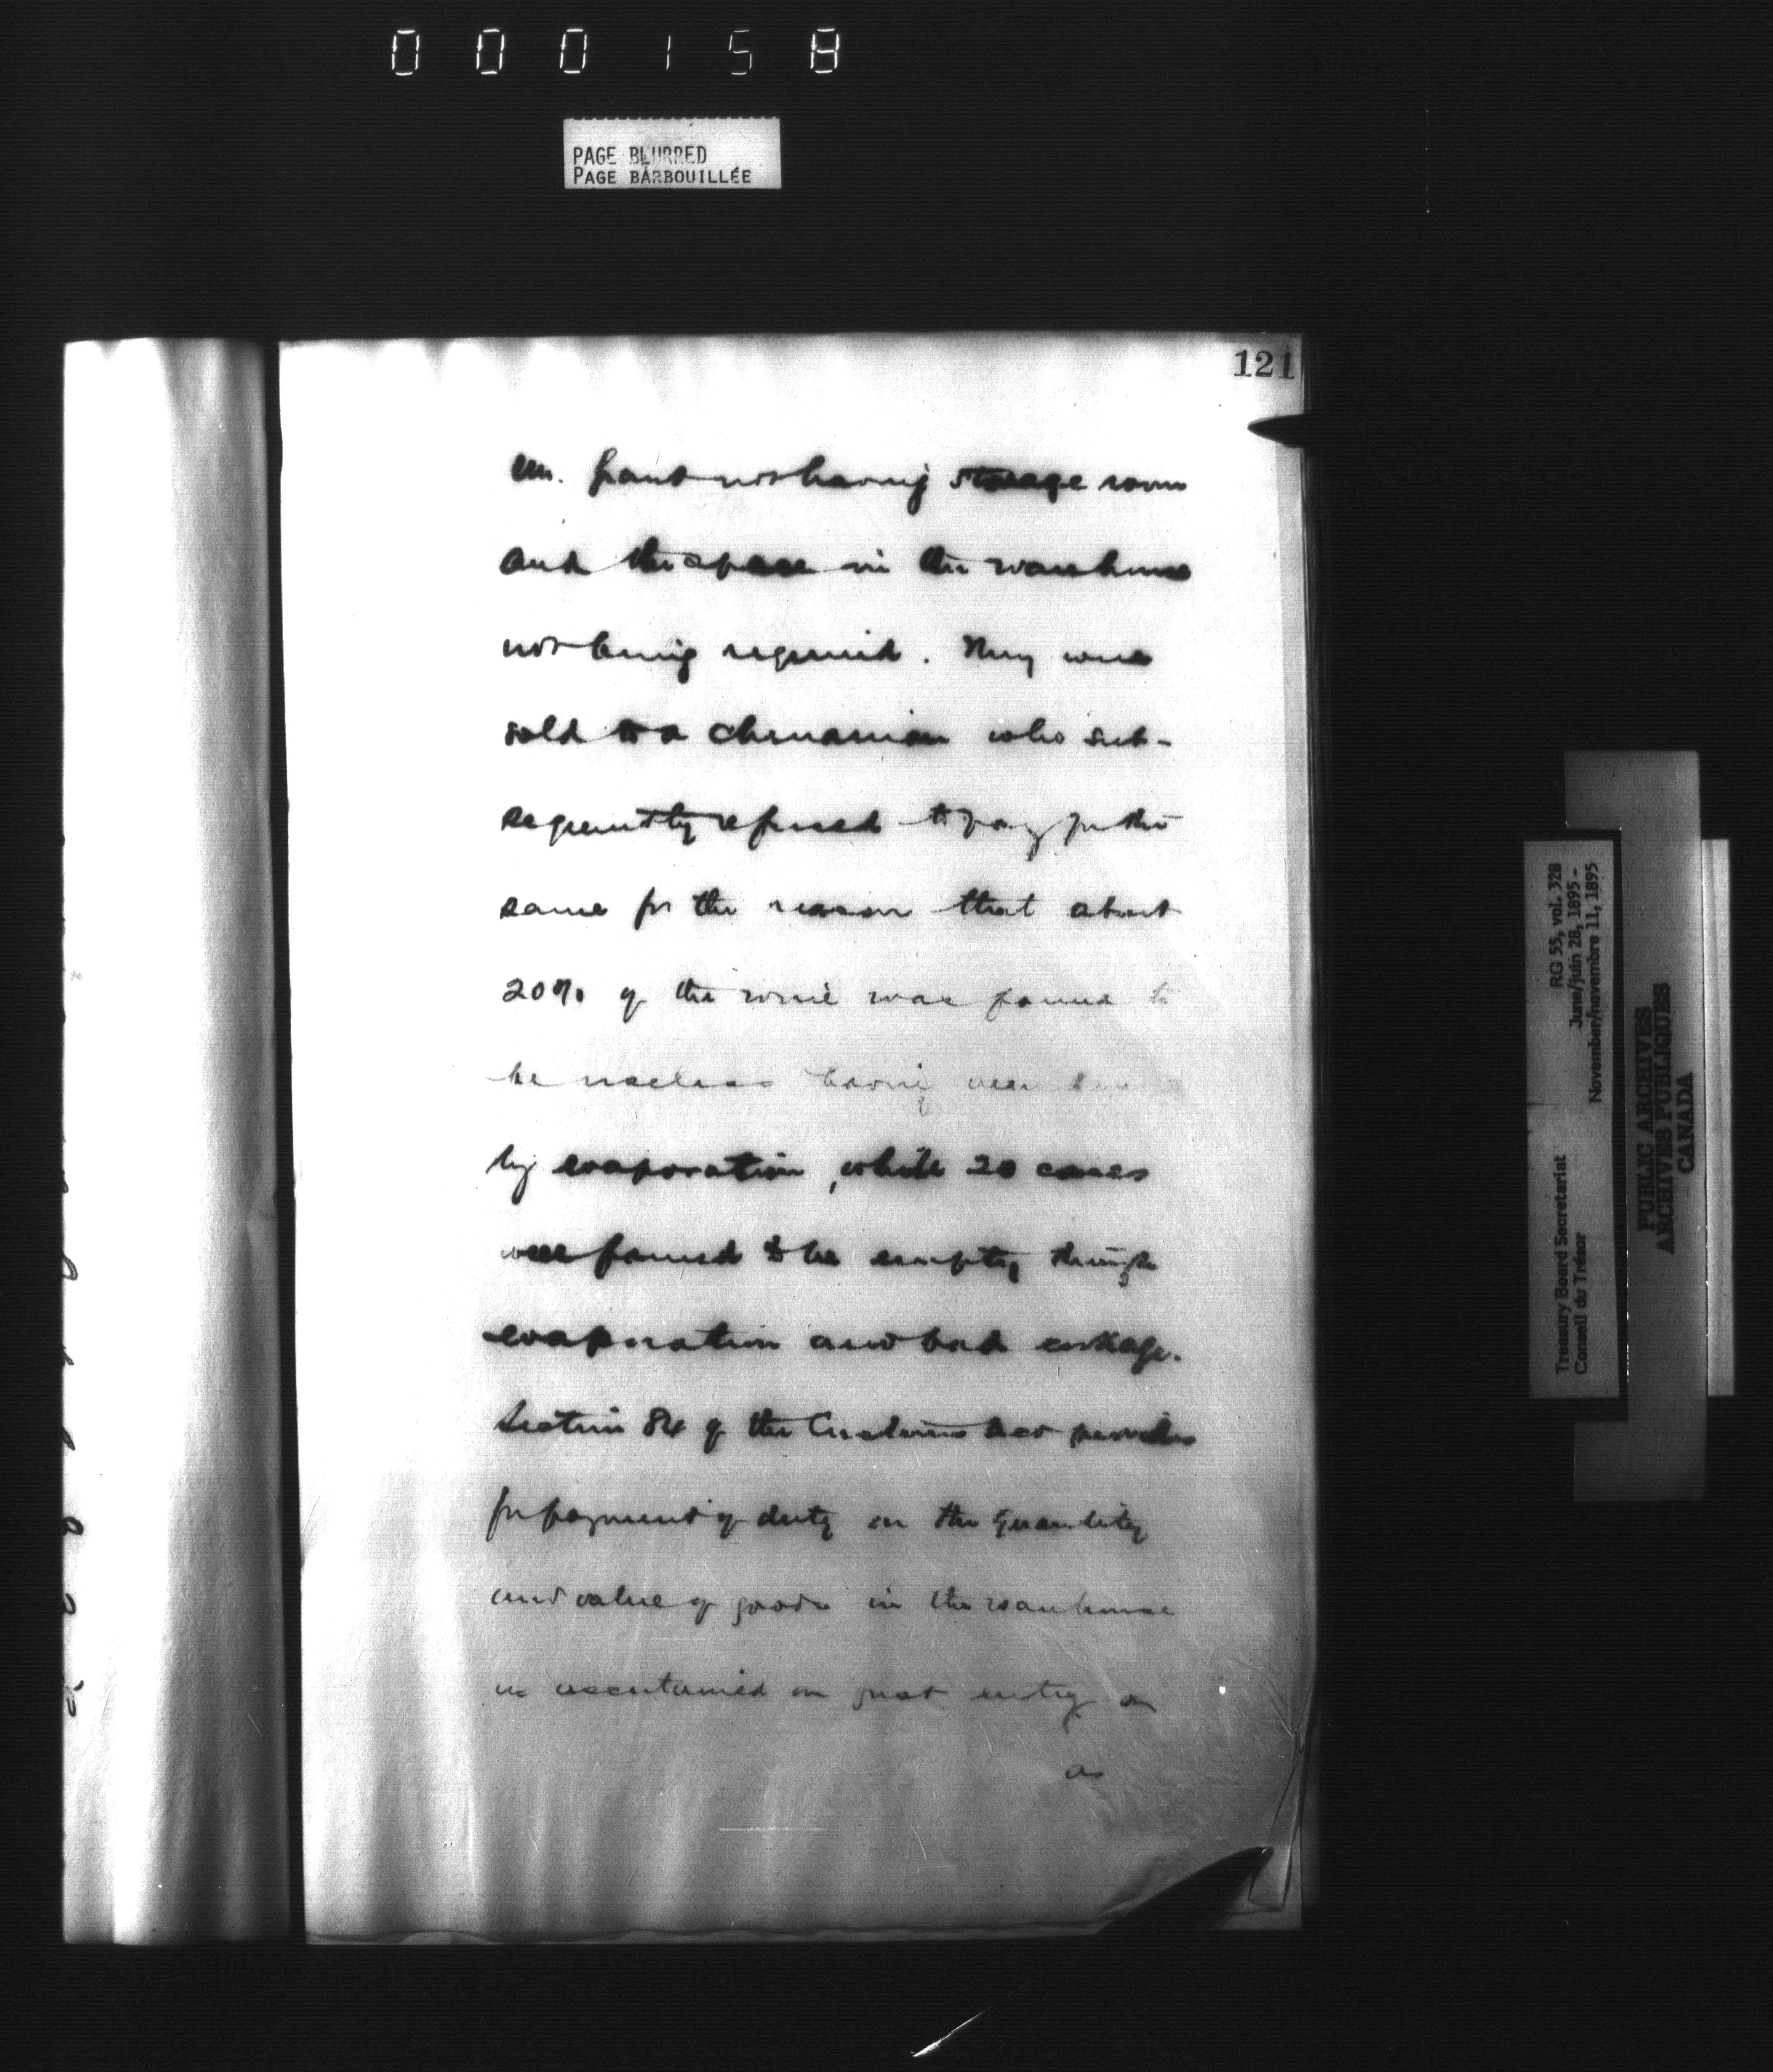 000158
PAGE BLURRED
PAGE BARBOUILLÉE
121
Mr. Grant not having storage room
and the space in the warehouse
not being required. They were
sold to a who sub-
sequently refused to pay for the
same for the reason that about
20% of the wine was found to
be useless having been
by evaporation, while 20 cases
were found to be empty through
evaporation and bad corkage.
Section 84 of the Customs Act provides
for payment of duty on the quantity
and value of goods in the warehouse
as ascertained on first entry or
as
RG 55, vol. 328
June/juin 28, 1895 -
November/novembre 11, 1895
Treasury Board Secretariat
Conseil du Trésor
PUBLIC ARCHIVES
ARCHIVES PUBLIQUES
CANADA